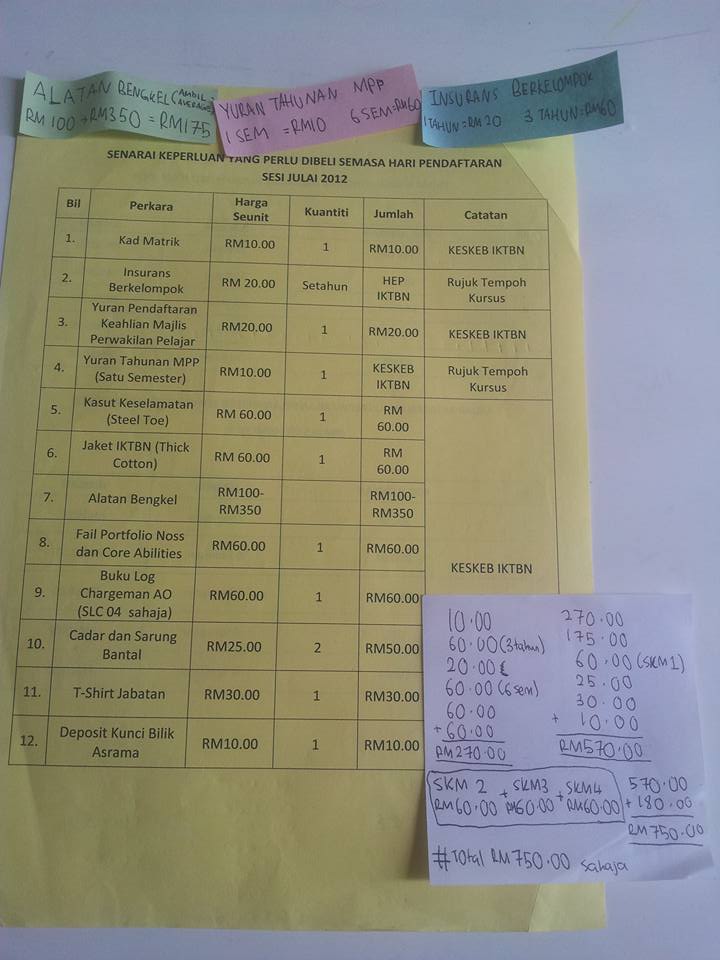 ALATAN BENGKEL (AMBIL AVERAGE)
RM 100 → RM350 = RM175
YURAN TAHUNAN MPP
1 SEM = RM10 6 SEM = RM60
INSURANS BERKELOMPOK
1 TAHUN = RM 20 3 TAHUN = RM60
SENARAI KEPERLUAN YANG PERLU DIBELI SEMASA HARI PENDAFTARAN
SESI JULAI 2012
Bil Perkara Harga Seunit Kuantiti Jumlah Catatan
1. Kad Matrik RM10.00 1 RM10.00 KESKEB IKTBN
2. Insurans Berkelompok RM 20.00 Setahun HEP IKTBN Rujuk Tempoh Kursus
3. Yuran Pendaftaran Keahlian Majlis Perwakilan Pelajar RM20.00 1 RM20.00 KESKEB IKTBN
4. Yuran Tahunan MPP (Satu Semester) RM10.00 1 KESKEB IKTBN Rujuk Tempoh Kursus
5. Kasut Keselamatan (Steel Toe) RM 60.00 1 RM 60.00
6. Jaket IKTBN (Thick Cotton) RM 60.00 1 RM 60.00
7. Alatan Bengkel RM100-RM350 RM100-RM350
8. Fail Portfolio Noss dan Core Abilities RM60.00 1 RM60.00
KESKEB IKTBN
9. Buku Log Chargeman AO (SLC 04 sahaja) RM60.00 1 RM60.00
10. Cadar dan Sarung Bantal RM25.00 2 RM50.00
11. T-Shirt Jabatan RM30.00 1 RM30.00
12. Deposit Kunci Bilik Asrama RM10.00 1 RM10.00
10.00
60.00 (3 tahun)
20.00
60.00 (6 sem)
60.00
+ 60.00
RM270.00
270.00
175.00
60.00 (SKM 1)
25.00
30.00
+ 10.00
RM570.00
SKM 2 + SKM3 + SKM4
RM60.00 RM60.00 RM60.00
570.00
+ 180.00
RM750.00
# Total RM750.00 sahaja